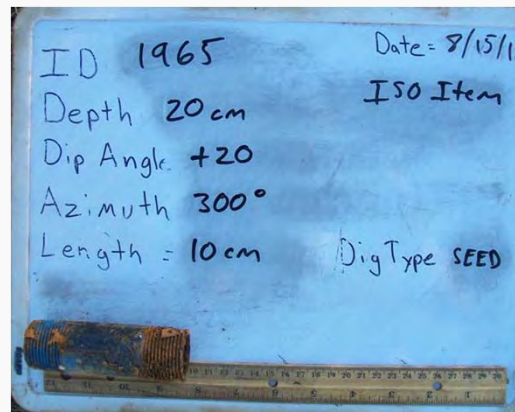 ID 1965
Date = 8/15/1
ISO Item
Depth 20 cm
Dip Angle +20
Azimuth 300°
Length = 10 cm
Dig Type SEED
10 11 12 13 14 15 16 17 18 19 20 21 22 23 24 25 26 27 28